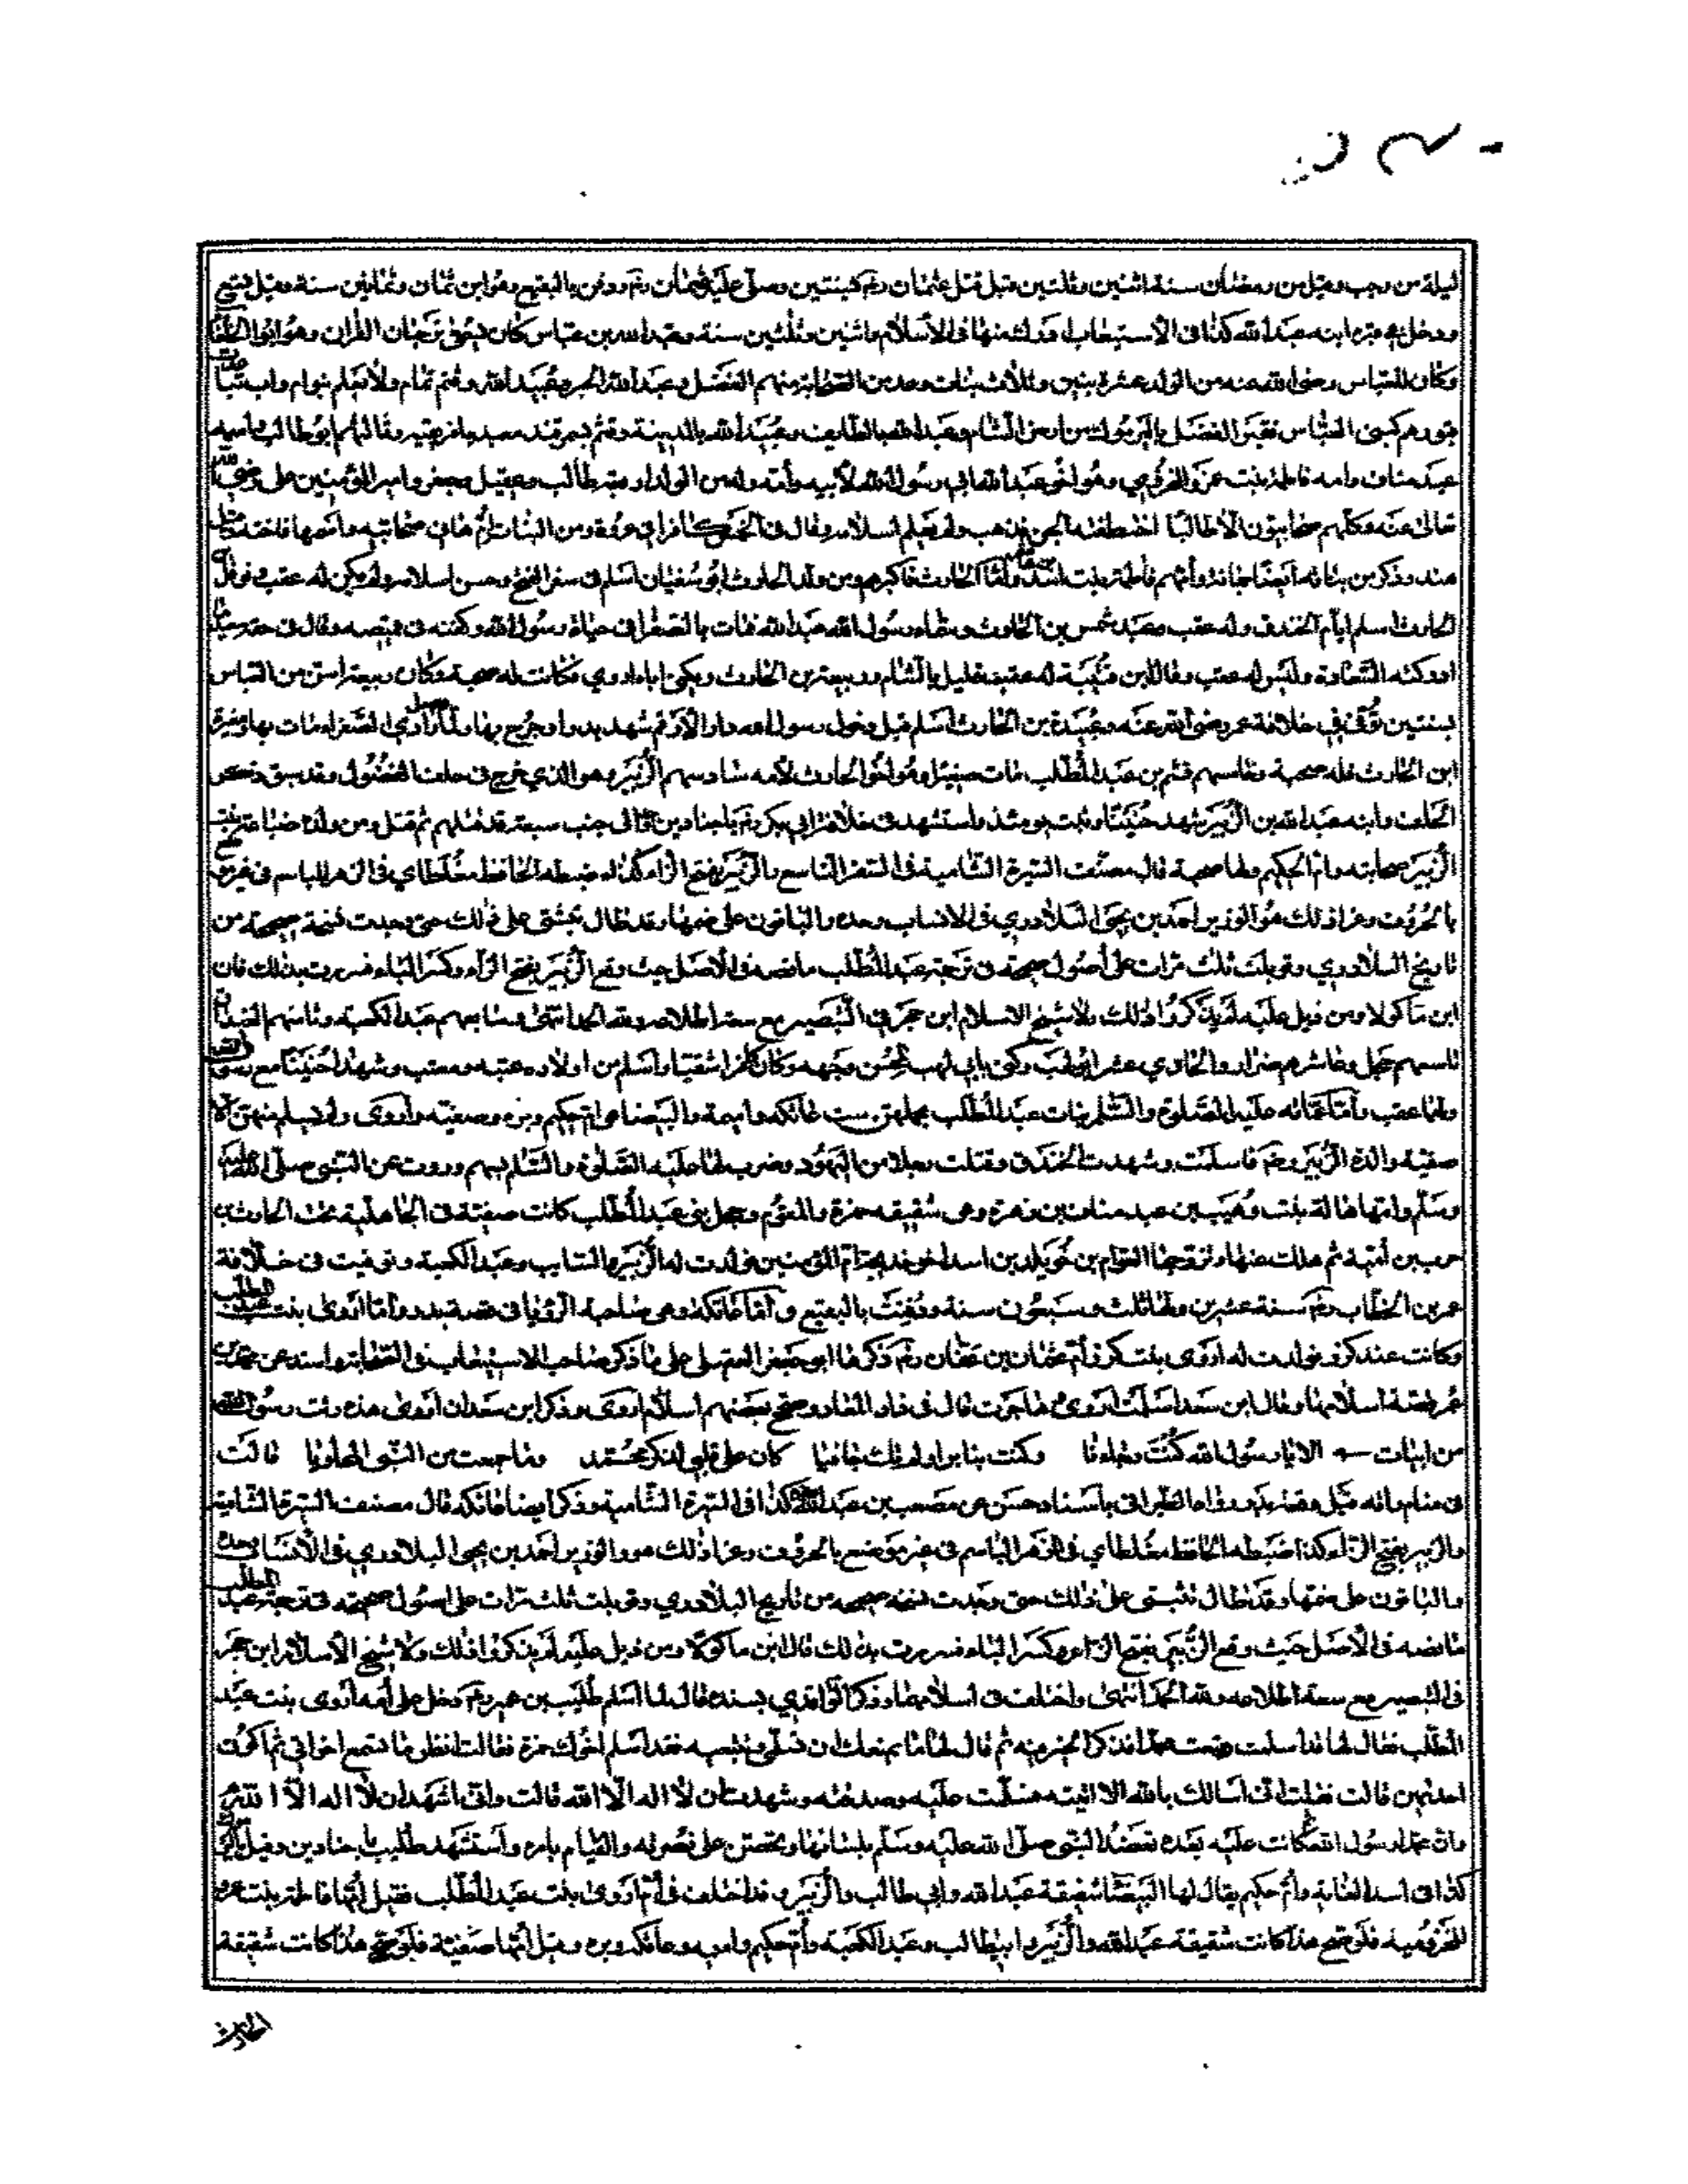 ليلة من رجب وقيل من رمضان سنة اثنتين وثلثين قبل قتل عثمان رضه بسنتين وصلى عليه عثمان رضه ودفن بالبقيع وهو ابن ثمان وثمانين سنة وقيل تسع
ودخل قبره ابنه عبد الله كذا في الاستيعاب ادرك منها في الاسلام اثنين وثلثين سنة وعبد الله بن عباس كان يدعى ترجمان القران وهو ابو الخلفا
وكان للعباس رضي الله عنه من الولد عشرة بنين وثلاث بنات وعد من الصحابة منهم الفضل وعبد الله الحبر وعبيد الله وقثم تمام ولا نعلم بنو ام واب تباعدت
قبورهم كبني العباس فقبر الفضل باليرموك من ارض الشام وعبد الله بالطايف وعبيد الله بالمدينة وقثم بسمرقند معبد بافريقية وثالثهم ابو طالب اسمه
عبد مناف وامه فاطمة بنت عمرو المخزومي وهو اخو عبد الله ابي رسول الله لابيه وأمه وله من الولد اربعة طالب وعقيل وجعفر وامير المؤمنين على رضي الله
تعالى عنه وكلهم صحابيون الا طالبا اختطفته الجن فذهب ولم يعلم اسلامه وقال في كافرا في غزوة ومن البنات ام هاني صحابية واسمها فاختة وقيل
هند وذكر من بناته ايضا جمانة وأمهم فاطمة بنت اسد وأما الحارث فاكبرهم ومن ولد الحارث ابو سفيان اسلم في سفر الفتح وحسن اسلامه ولم يكن له عقب ونوفل بن
الحارث اسلم ايام الخندق وله عقب وعبد شمس بن الحارث وسماه رسول الله عبد الله فمات بالصفرا في حياة رسول الله وكفنه في قميصه وقال في حقه سعيد
ادركته السعادة وليس له عقب وقال ابن قتيبة له عقبه قليل بالشام وربيعة بن الحارث ويكنى ابا اروى وكانت له صحبة وكان ربيعة اسن من العباس
بسنتين توفي في خلافة عمر رضي الله عنه وعبيدة بن الحارث اسلم قبل دخول رسول الله دار الارقم شهد بدرا وجرح بها وادي الصفرا مات بها ومغيرة
ابن الحارث فله صحبة وخامسهم قثم بن عبد المطلب مات صغيرا وهو اخو الحارث لامه سادسهم الزبير وهو الذي خرج في حلف الفضول وقد سبق
الحلف وابنه عبد الله بن الزبير شهد حنينا وثبت يومئذ واستشهد في خلافة ابي بكر رضه باجنادين الى جنب سبعة قد قتلهم ثم قتل ومن ولده ضباعة بنت
الزبير صحابية وام الحكيم ولها صحبة قال مصنف السيرة الشامية في السفر التاسع والزبير بفتح الزاء كذا ضبطه الحافظ مغلطاي في الزهر الباسم في غير موضع
بالحروف وعزا ذلك هو الوزير احمد بن يحيى البلاذري في الانساب وحده والباقون على ضمها وقد طال تعبي على ذلك حتى وجدت نسخة صحيحة من
تاريخ البلاذري وقوبلت ثلث مرات على أصول صحيحة في ترجمة عبد المطلب ما نصه في الاصل حيث وقع الزبير بفتح الزاء وكسر الباء فسررت بذلك فان
ابن ماكولا ومن ذيل عليه لم يذكروا ذلك ولا شيخ الاسلام ابن حجر في التبصير مع سعة اطلاعه ولله الحمد انتهى وسابعهم عبد الكعبة وثامنهم الغيداق
تاسعهم حجل وعاشرهم ضرار والحادي عشر ابو لهب وكني بابي لهب لحسن وجهه وكان كافرا شقيا واسلم من اولاده عتبة ومعتب وشهدا حنينا مع رسول الله
ولهما عقب وأما عماته عليه الصلوة والسلم بنات عبد المطلب بجملهن ست عاتكة واميمة والبيضا هي ام حكيم وبرة وصفية وأروى ولم يسلم منهن الا
صفية والدة الزبير رضه فاسلمت وشهدت الخندق وقتلت رجلا من اليهود وضرب لها عليه الصلوة والسلم بسهم وروت عن النبي صلى الله عليه
وسلم وامها هالة بنت وهيب بن عبد مناف بن زهرة وهي شقيقة حمزة والمقوم وحجل بني عبد المطلب كانت صفية في الجاهلية تحت الحارث بن
حرب بن أمية ثم هلك عنها وتزوجها العوام بن خويلد بن اسد اخو خديجة ام المؤمنين فولدت له الزبير والسايب وعبد الكعبة وتوفيت في خلافة
عمر بن الخطاب رضه سنة عشرين ولها ثلث وسبعون سنة ودفنت بالبقيع وأما عاتكة وهي صاحبة الرؤيا في قصة بدر وأما اروى بنت عبد المطلب
وكانت عند كريز فولدت له اروى بنت كريز أم عثمان بن عفان رضه ذكرها ابو جعفر العقيلي على ما ذكر صاحب الاستيعاب في الصحابة واسند عن محمد بن
عمر قصة اسلامها وقال ابن سعد اسلمت اروى وهاجرت قال في زاد المعاد وصحح بعضهم اسلام اروى وذكر ابن سعد ان اروى هذه رثت رسول الله
من ابيات الا يا رسول الله كنت رجاءنا وكنت بنا برا ولم تك جافيا كان على قلبي لذكر محمد وما جمعت من النبي المجاويا قالت
في منام رأته قبل وقعة بدر رواه الطبراني باسناد حسن عن مصعب بن عبد الله كذا في السيرة الشامية وذكر ايضا عاتكة قال مصنف السيرة الشامية
والزبير بفتح الزاء كذا ضبطه الحافظ مغلطاي في الزهر الباسم في غير موضع بالحروف وعزا ذلك هو والوزير احمد بن يحيى البلاذري في الانساب وحده
والباقون على ضمها وقد طال على ذلك حتى وجدت نسخة صحيحة من تاريخ البلاذري وقوبلت ثلث مرات على اصول صحيحة في ترجمة عبد المطلب
ما نصه في الاصل حيث وقع الزبير بفتح الزاء وكسر الباء فسررت بذلك فان ابن ماكولا ومن ذيل عليه لم يذكروا ذلك ولا شيخ الاسلام ابن حجر
في التبصير مع سعة اطلاعه ولله الحمد انتهى واختلف في اسلامها وذكر الواقدي بسنده قال لما اسلم طليب بن عمير رضه دخل على أمه أروى بنت عبد
المطلب فقال لها قد اسلمت وتبعت محمدا فذكر الخبر وفيه ثم قال لها ما يمنعك ان تسلمي وتتبعيه فقد اسلم اخوك حمزة فقالت انظر ما تصنع اخواتي ثم اكون
احديهن قالت فقلت اني اسالك بالله الا اتيته فسلمت عليه وصدقته وشهدت ان لا اله الا الله قالت واني اشهد ان لا اله الا الله
وان محمدا رسول الله ثم كانت عليه بعده تعضد النبي صلى الله عليه وسلم بلسانها وتحض على نصرته والقيام بامره واستشهد طليب باجنادين وقيل باليرموك
كذا في اسد الغابة وأم حكيم يقال لها البيضا شقيقة عبد الله وابي طالب والزبير وقد اختلف في أم اروى بنت عبد المطلب فقيل أمها فاطمة بنت عمرو
المخزومية فلو صح هذا كانت شقيقة عبد الله والزبير وابي طالب وعبد الكعبة وأم حكيم واميمة وعاتكة وبرة وقيل أمها صفية فلو صح هذا كانت شقيقة
الحارث